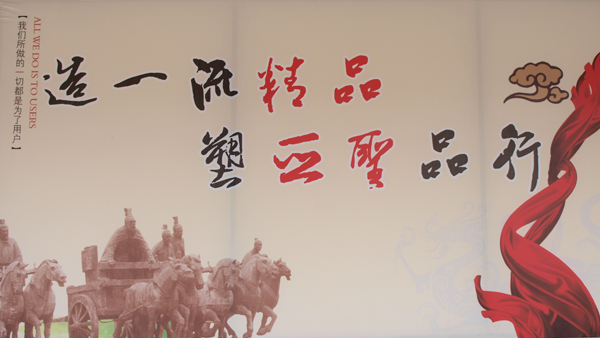 造一流精品
塑亚聖品行
ALL WE DO IS TO USERS
【我们所做的一切都是为了用户】